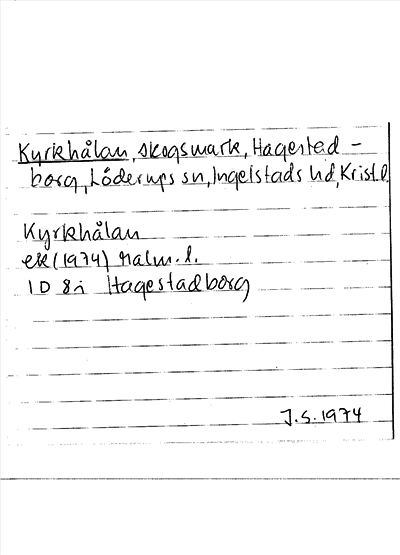 Kyrkhålan, skogsmark, Hagestad-
borg, Löderups sn, Ingelstads hd, Krist.l.
Kyrkhålan
ek (1974) Malm.l.
1D 8i Hagestadborg
J.S. 1974